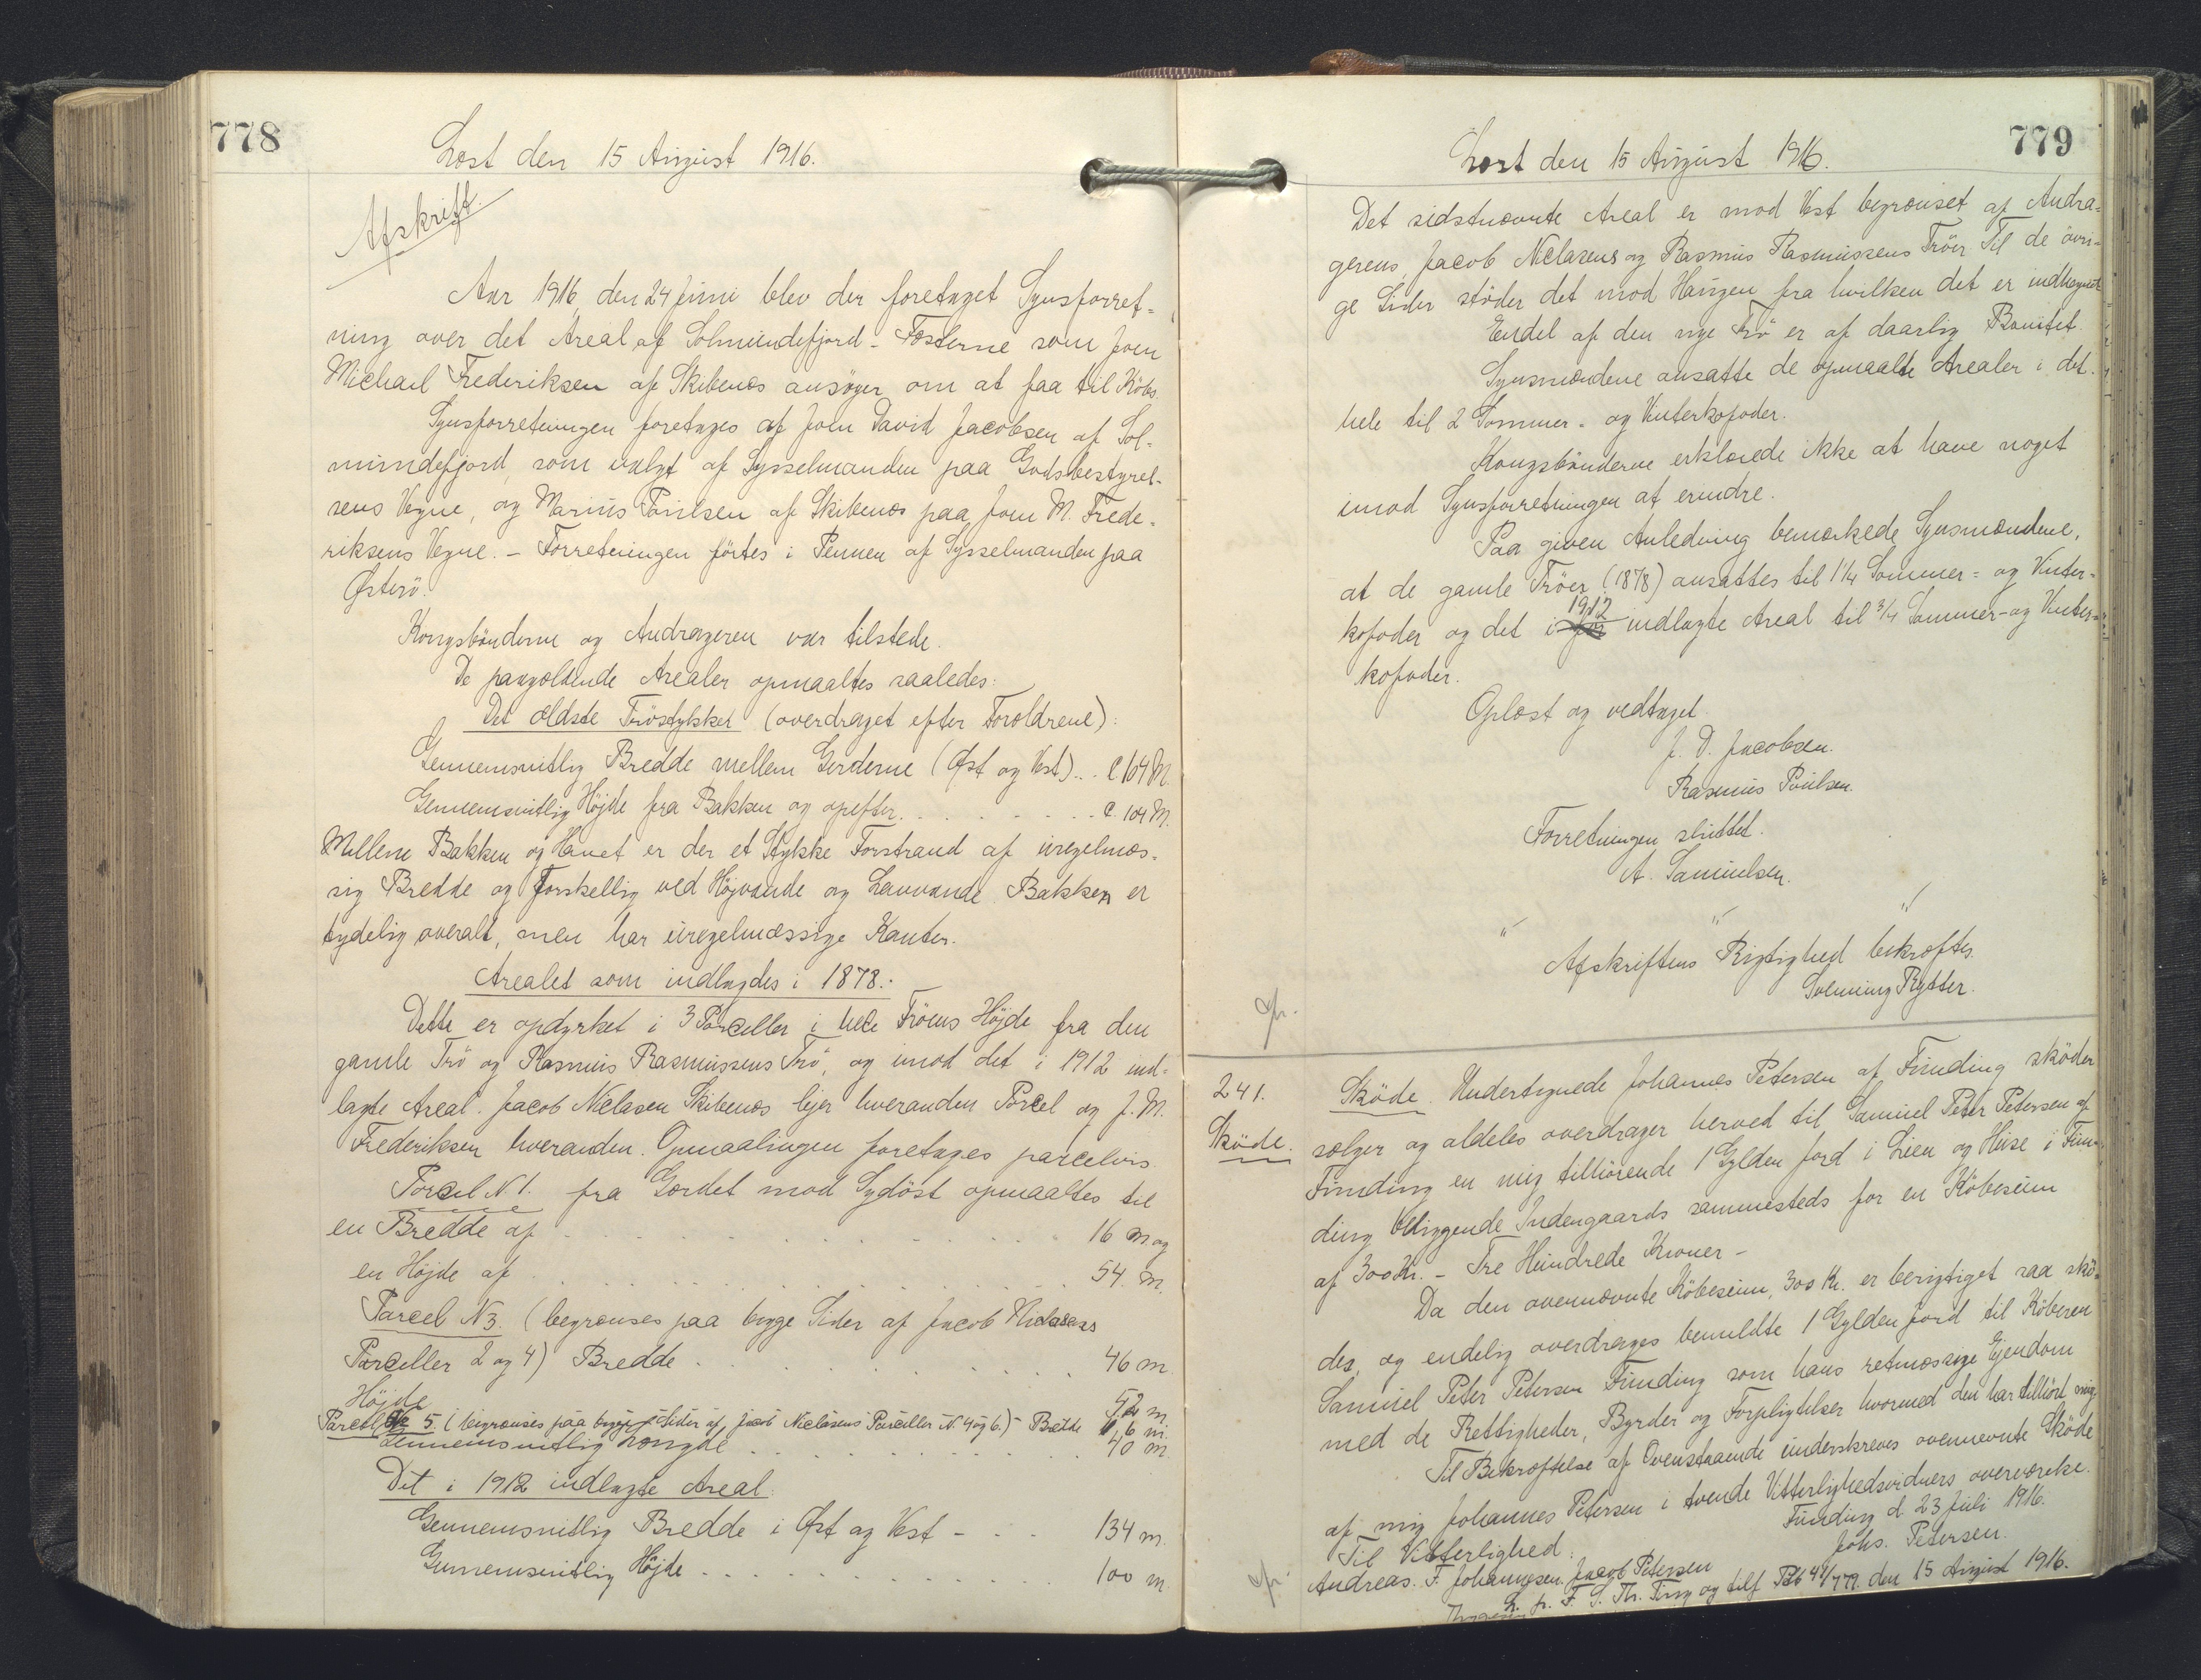 778
Læst den 15 August 1916.
Afskrift.
Aar 1916, den 24 Juni blev der foretaget Synsforret-
ning over det Areal af Solmundefjord-Fæsterne som Joen
Michael Frederiksen af Skibenæs ansøger om at faa til Købs.
Synsforretningen foretages af Joen David Jacobsen af Sol-
mundefjord, som valgt af Sysselmanden paa Godsbestyrel-
sens Vegne, og Marius Poulsen af Skibenæs paa Joen M. Frede-
riksens Vegne. - Forretningen førtes i Pennen af Sysselmanden paa
Østerö.
Kongsbönderne og Andrageren var tilstede.
De paagældende Arealer opmaaltes saaledes:
Det ældste Tröstykke (overdraget efter Forældrene):
Gennemsnitlig Bredde mellem Gerderne (Øst og Vest)... c 104 M.
Gennemsnitlig Højde fra Bakken og opefter. . . . . . . . . c. 104 M.
Mellem Bakken og Havet er der et Stykke Forstrand af uregelmæs-
sig Bredde og Forskellig ved Højvande og Lavvande. Bakken er
tydelig overalt, men har uregelmæssige Kanter.
Arealet som indlagdes i 1878.:
Dette er opdyrket i 3 Parceller i hele Tröens Højde fra den
gamle Trö og Rasmus Rasmussens Trö, og imod det i 1912 ind-
lagte Areal. Jacob Niclasen Skibenæs ejer hveranden Parcel og J. M.
Frederiksen hveranden. Opmaalingen foretages parcelvis
Parcel N 1. fra Gærdet mod Sydöst opmaaltes til
en Bredde af . . . . . . . . . . . 16 m og
en Højde af . . . . . . . . . . . 54. m.
Parcel N 3. (begrænses paa begge Sider af Jacob Niclasens
Parceller 2 og 4) Bredde . . . . . . 46 m
Højde 52 m.
Parcel Nr 5. (begrænses paa begge Sider af Jacob Niclasens Parceller N. 4 og 6.) - Bredde 16 m.
Gennemsnitlig Længde . . . . . . . . . 40 m.
Det i 1912 indlagte Areal:
Gennemsnitlig Bredde i Øst og Vest - . . . 134 m.
Gennemsnitlig Højde . . . . . . . . . . . 100 m.
779
Læst den 15 August 1916.
Det sidstnævnte Areal er mod Vest begrænset af Andra-
gerens, Jacob Niclasens og Rasmus Rasmussens Tröer. Til de övri-
ge Sider stöder det mod Haugen fra hvilken det er indhegnet
Endel af den nye Trö er af daarlig Bonitet.
Synsmændene ansatte de opmaalte Arealer i det-
hele til 2 Sommer- og Vinterkofoder.
Kongsbönderne erklærede ikke at have noget
imod Synsforretningen at erindre.
Paa given Anledning bemærkede Synsmændene,
at de gamle Tröer (1878) ansattes til 1 1/4 Sommer- og Vinter-
1912
kofoder og det i indlagte Areal til 3/4 Sommer- og Vinter-
kofoder.
Oplæst og vedtaget
J. D. Jacobsen.
Rasmus Poulsen.
Forretningen sluttet.
A. Samuelsen.
" " "
Afskriftens Rigtighed bekræftes.
Solmning Rytter.
241.
Sköde.
Sköde. Undertegnede Johannes Petersen af Funding sköder
sælger og aldeles overdrager herved til Samuel Peter Petersen af
Funding en mig tilhörende 1 Gylden Jord i Lien og Huse i Fun-
ding beliggende Indengaards sammesteds for en Köbesum
af 300 Kr. - Tre Hundrede Kroner -
Da den ovennævnte Köbesum, 300 Kr. er berigtiget saa skö-
des, og endelig overdrages bemeldte 1 Gylden Jord til Köberen
Samuel Peter Petersen Funding som hans retmæssige Ejendom
med de Rettigheder, Byrder og Forpligtelser hvormed den har tilhört mig.
Til Bekræftelse af Ovenstaaende underskreves ovennævnte Sköde
af mig Johannes Petersen i tvende Vitterlighedsvidners overværelse.
Funding d. 23 Juli 1916.
Til Vitterlighed: Johs. Petersen.
Andreas. F. Johannesen. Jacob Petersen
L. p. F. S. Th. Ting og tilf Pb 44/779. den 15 August 1916.